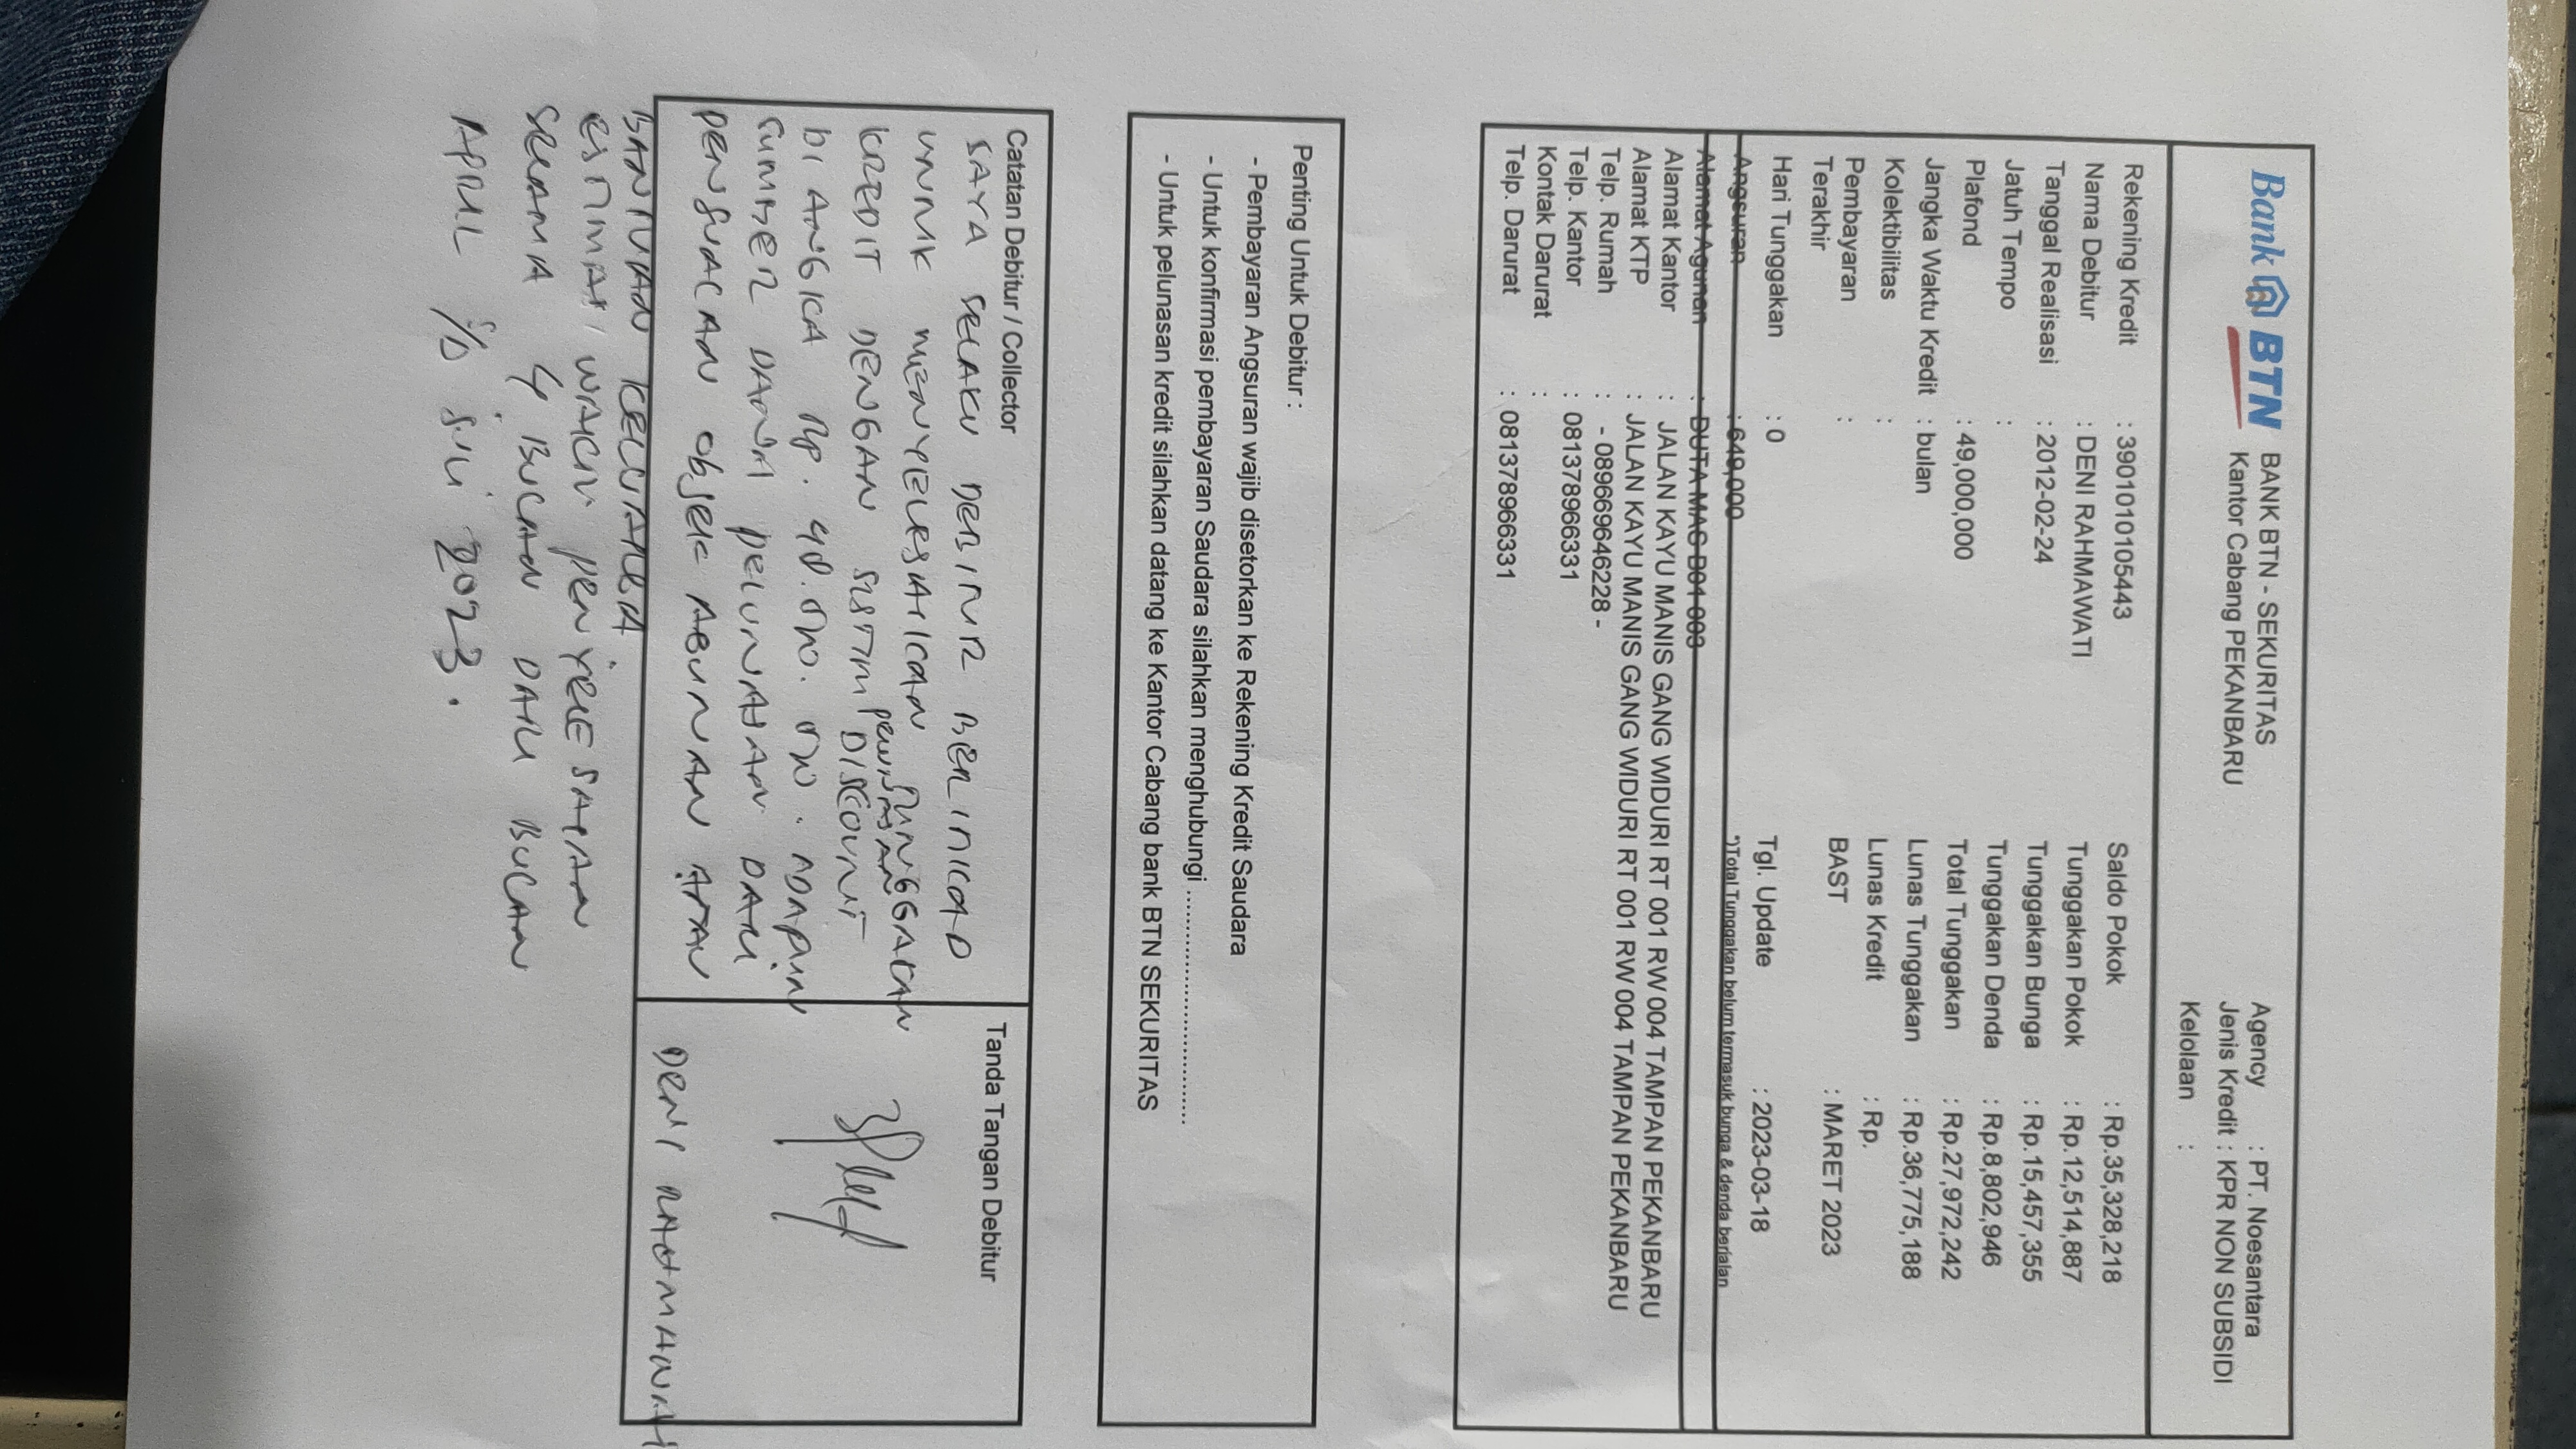 Bank BTN
BANK BTN - SEKURITAS
Kantor Cabang PEKANBARU
Agency : PT. Noesantara
Jenis Kredit : KPR NON SUBSIDI
Kelolaan :
Rekening Kredit : 3901010105443
Saldo Pokok : Rp.35,328,218
Nama Debitur : DENI RAHMAWATI
Tunggakan Pokok : Rp.12,514,887
Tanggal Realisasi : 2012-02-24
Tunggakan Bunga : Rp.15,457,355
Jatuh Tempo :
Tunggakan Denda : Rp.8,802,946
Plafond : 49,000,000
Total Tunggakan : Rp.27,972,242
Jangka Waktu Kredit : bulan
Lunas Tunggakan : Rp.36,775,188
Kolektibilitas :
Lunas Kredit : Rp.
Pembayaran :
Terakhir
BAST : MARET 2023
Hari Tunggakan : 0
Tgl. Update : 2023-03-18
Angsuran : 649,000
*)Total Tunggakan belum termasuk bunga & denda berjalan
Alamat Agunan : DUTA MAS B04 003
Alamat Kantor : JALAN KAYU MANIS GANG WIDURI RT 001 RW 004 TAMPAN PEKANBARU
Alamat KTP : JALAN KAYU MANIS GANG WIDURI RT 001 RW 004 TAMPAN PEKANBARU
Telp. Rumah : - 089669646228 -
Telp. Kantor : 081378966331
Kontak Darurat :
Telp. Darurat : 081378966331
Penting Untuk Debitur :
- Pembayaran Angsuran wajib disetorkan ke Rekening Kredit Saudara
- Untuk konfirmasi pembayaran Saudara silahkan menghubungi ..............................
- Untuk pelunasan kredit silahkan datang ke Kantor Cabang bank BTN SEKURITAS
Catatan Debitur / Collector
Tanda Tangan Debitur
SAYA SELAKU DEBITUR BERITIKAD
UNTUK MENYELESAIKAN TUNGGAKAN
KREDIT DENGAN SISTIM PELUNASAN DISCOUNT
DI ANGKA RP. 40.000.000. ADAPUN
SUMBER DANA PELUNASAN DARI
PENJUALAN OBJEK AGUNAN ATAU
BANTUAN KELUARGA
ESTIMASI WAKTU PENYELESAIAN
SELAMA 4 BULAN DARI BULAN
APRIL S/D JULI 2023.
DENI RAHMAWATI